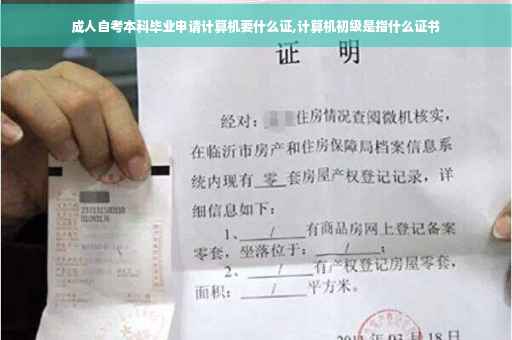 成人自考本科毕业申请计算机要什么证,计算机初级是指什么证书
证 明
经对: 住房情况查阅微机核实,
在临沂市房产和住房保障局档案信息系
统内现有 零 套房屋产权登记记录, 详
细信息如下:
1、 / 有商品房网上登记备案
零套, 坐落位于: / ;
2、 / 有产权登记房屋零套,
面积: / 平方米。
03月18日